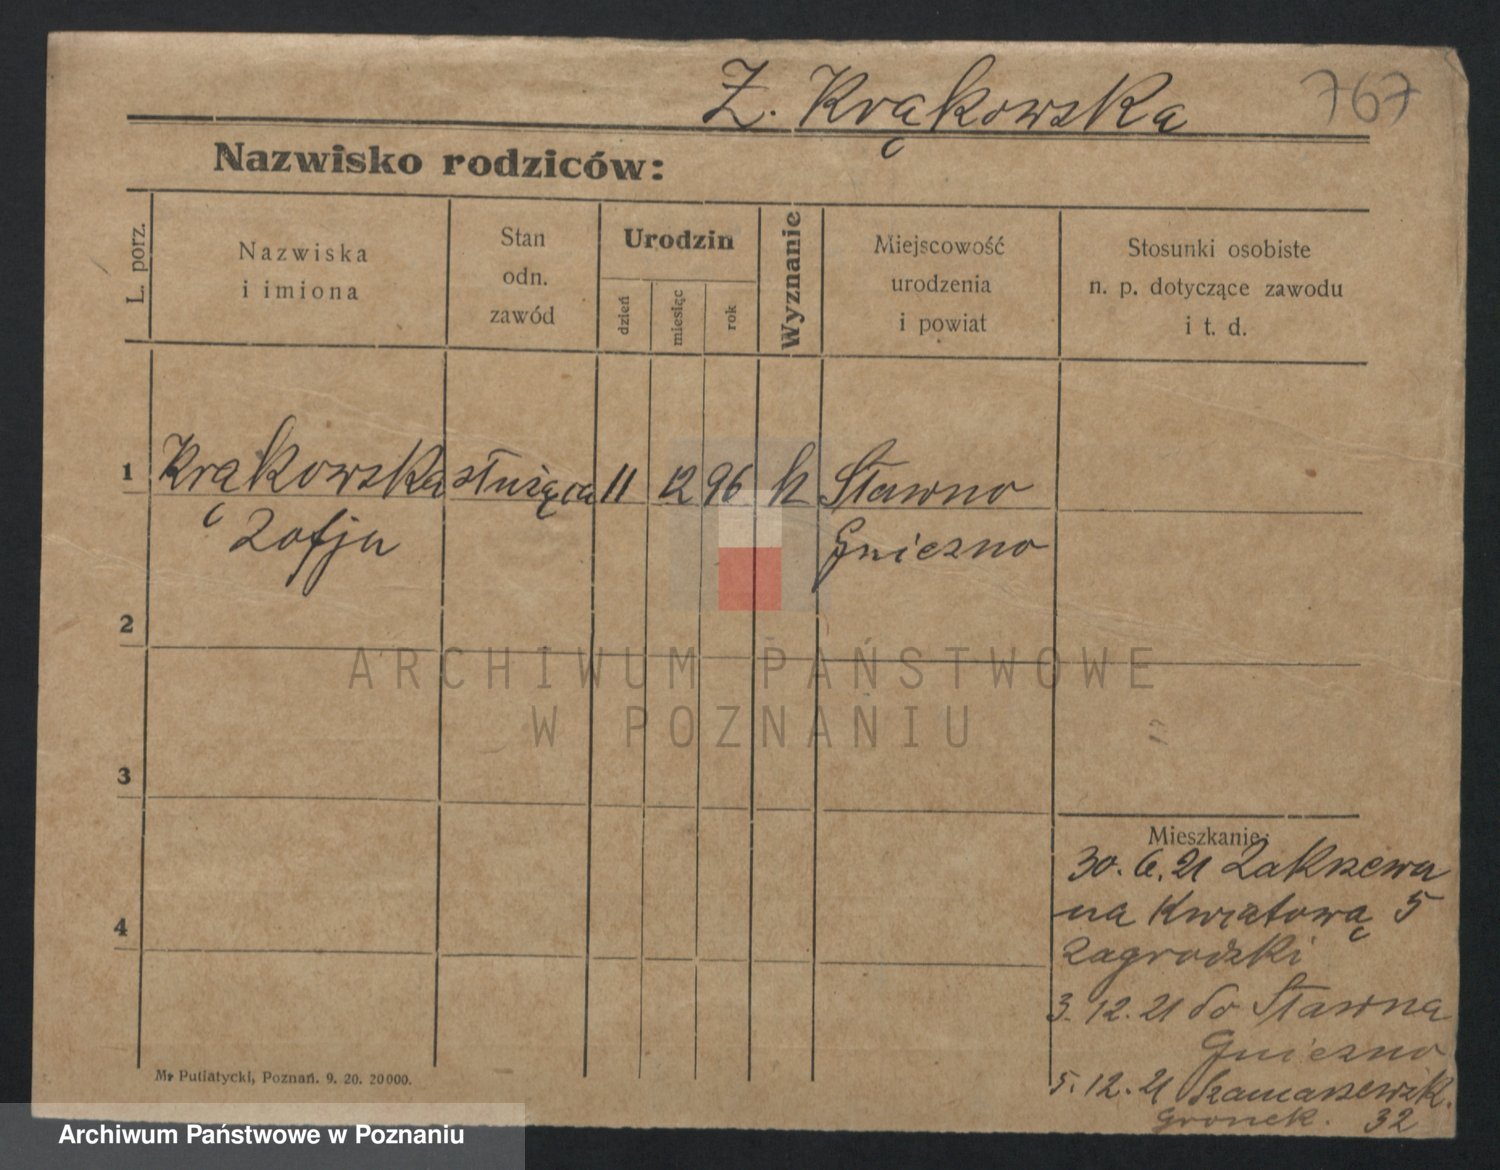 Z. Krąkowska 767
Nazwisko rodziców:
L. porz.
Nazwiska
i imiona
Stan
odn.
zawód
Urodzin
dzień
miesiąc
rok
Wyznanie
Miejscowość
urodzenia
i powiat
Stosunki osobiste
n. p. dotyczące zawodu
i t. d.
1 Krąkowska służąca 11 12 96 k Sławno
Zofja Gniezno
2
3
4
Mieszkanie:
30. 6. 21 Zakrzewa
na Kwiatową 5
Zagrodzki
3. 12. 21 do Sławna
Gniezno
5. 12. 21 Szamarzewsk.
Gronek. 32
Mr Putiatycki, Poznań. 9. 20. 20000.
ARCHIWUM PAŃSTWOWE
W POZNANIU
Archiwum Państwowe w Poznaniu